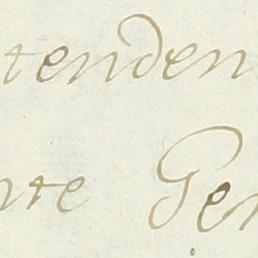 tenden
nte Gen